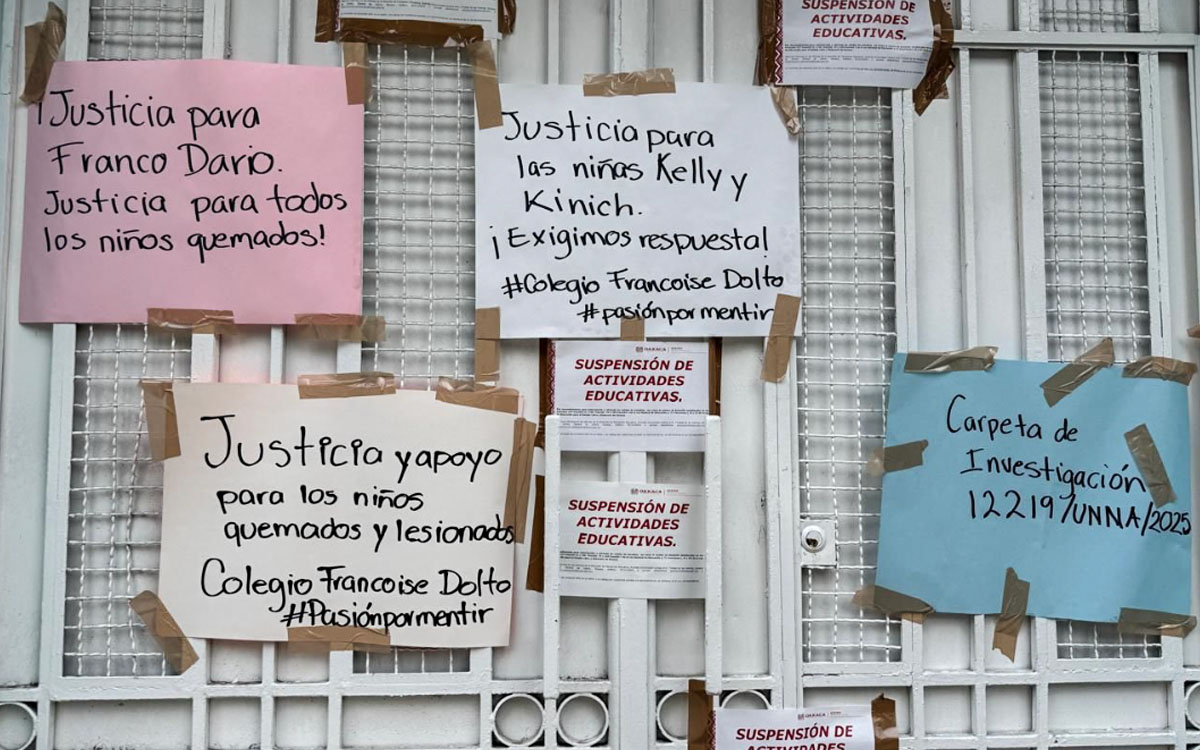 SUSPENSIÓN DE
ACTIVIDADES
EDUCATIVAS.
¡Justicia para
Franco Dario.
Justicia para todos
los niños quemados!
Justicia para
las niñas Kelly y
Kinich.
¡Exigimos respuesta!
#Colegio Francoise Dolto
#pasiónpormentir
Justicia y apoyo
para los niños
quemados y lesionados
Colegio Francoise Dolto
#Pasiónpormentir
OAXACA
SUSPENSIÓN DE
ACTIVIDADES
EDUCATIVAS.
OAXACA
SUSPENSIÓN DE
ACTIVIDADES
EDUCATIVAS.
Carpeta de
Investigación
12219/UNNA/2025
OAXACA
SUSPENSIÓN DE
ACTIVIDADES